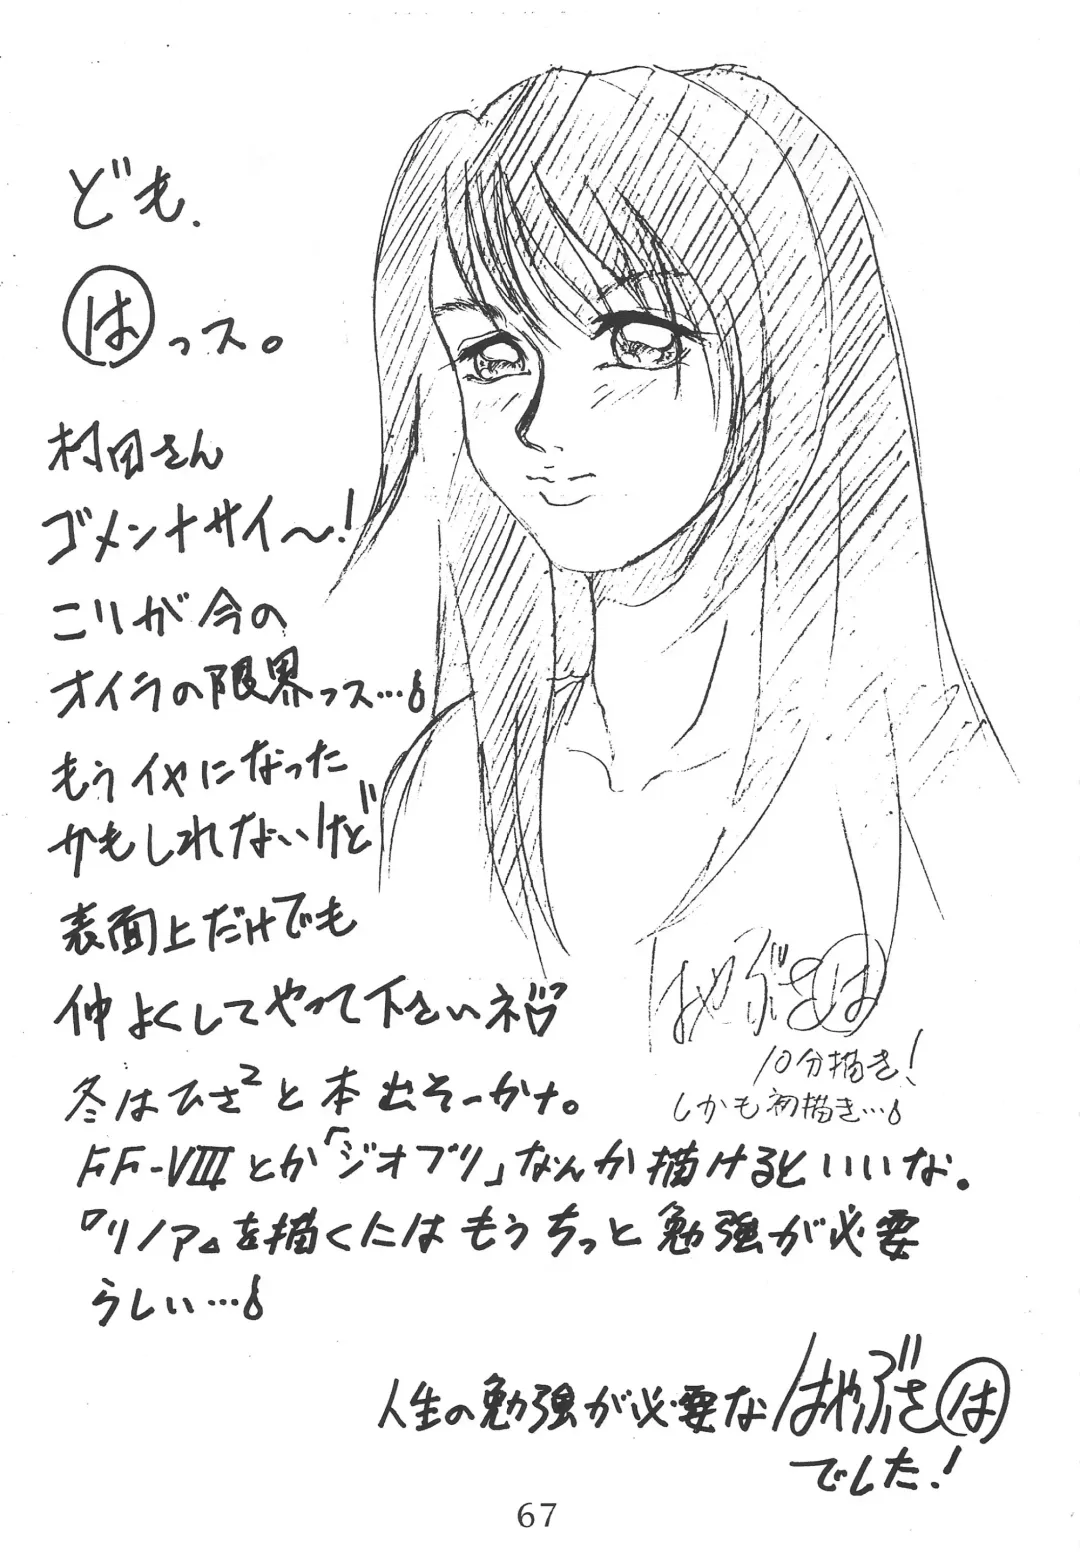 ども.
はっス。
村田さん
ゴメンナサイ～!
こりが今の
オイラの限界っス…
もうイヤになった
かもしれないけど
表面上だけでも
仲よくしてやって下さいネ
はやぶさは
10分描き!
しかも初描き…
冬はひさ²と本出そーかナ。
FF-VIIIとか「ジオブリ」なんか描けるといいな。
『リノア』を描くにはもうちっと勉強が必要
らしい…
人生の勉強が必要なはやぶさは
でした!
67